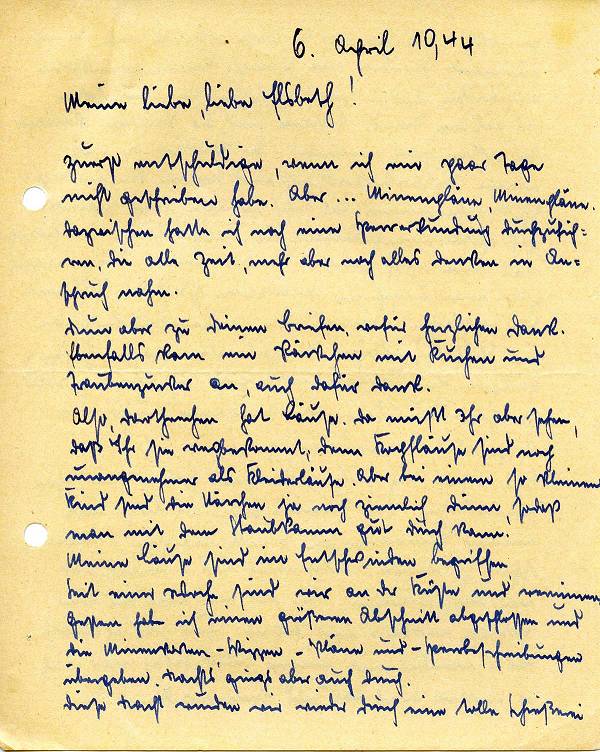 6. April 1944
Meine liebe, liebe Elsbeth!
Zuerst entschuldige, wenn ich ein paar Tage
nicht geschrieben habe. Aber ... Minenpläne, Minenpläne.
Dazwischen hatte ich noch eine Sperrerkundung durchzufüh-
ren, die alle Zeit, mehr aber noch alles Denken in An-
spruch nahm.
Nun aber zu Deinen Briefen, wofür herzlichen Dank.
Ebenfalls kam ein Päckchen mit Kuchen und
Traubenzucker an, auch dafür Dank.
Also, Dorthchen hat Läuse. Da müßt Ihr aber sehen,
daß Ihr sie wegbekommt, denn Kopfläuse sind noch
unangenehmer als Kleiderläuse. Aber bei einem so kleinen
Kind sind die Härchen ja noch ziemlich dünn, sodaß
man mit dem Staubkamm gut durch kann.
Meine Läuse sind im Entschwinden begriffen
Seit einer Woche sind wir an der Küste und verminen
Gestern habe ich einen größeren Abschnitt abgeschlossen und
die Minenkarten -Skizzen -Pläne und -Sperrbeschreibungen
übergeben. Nachts gings aber auch durch.
Diese Nacht wurden wir wieder durch eine tolle Schießerei